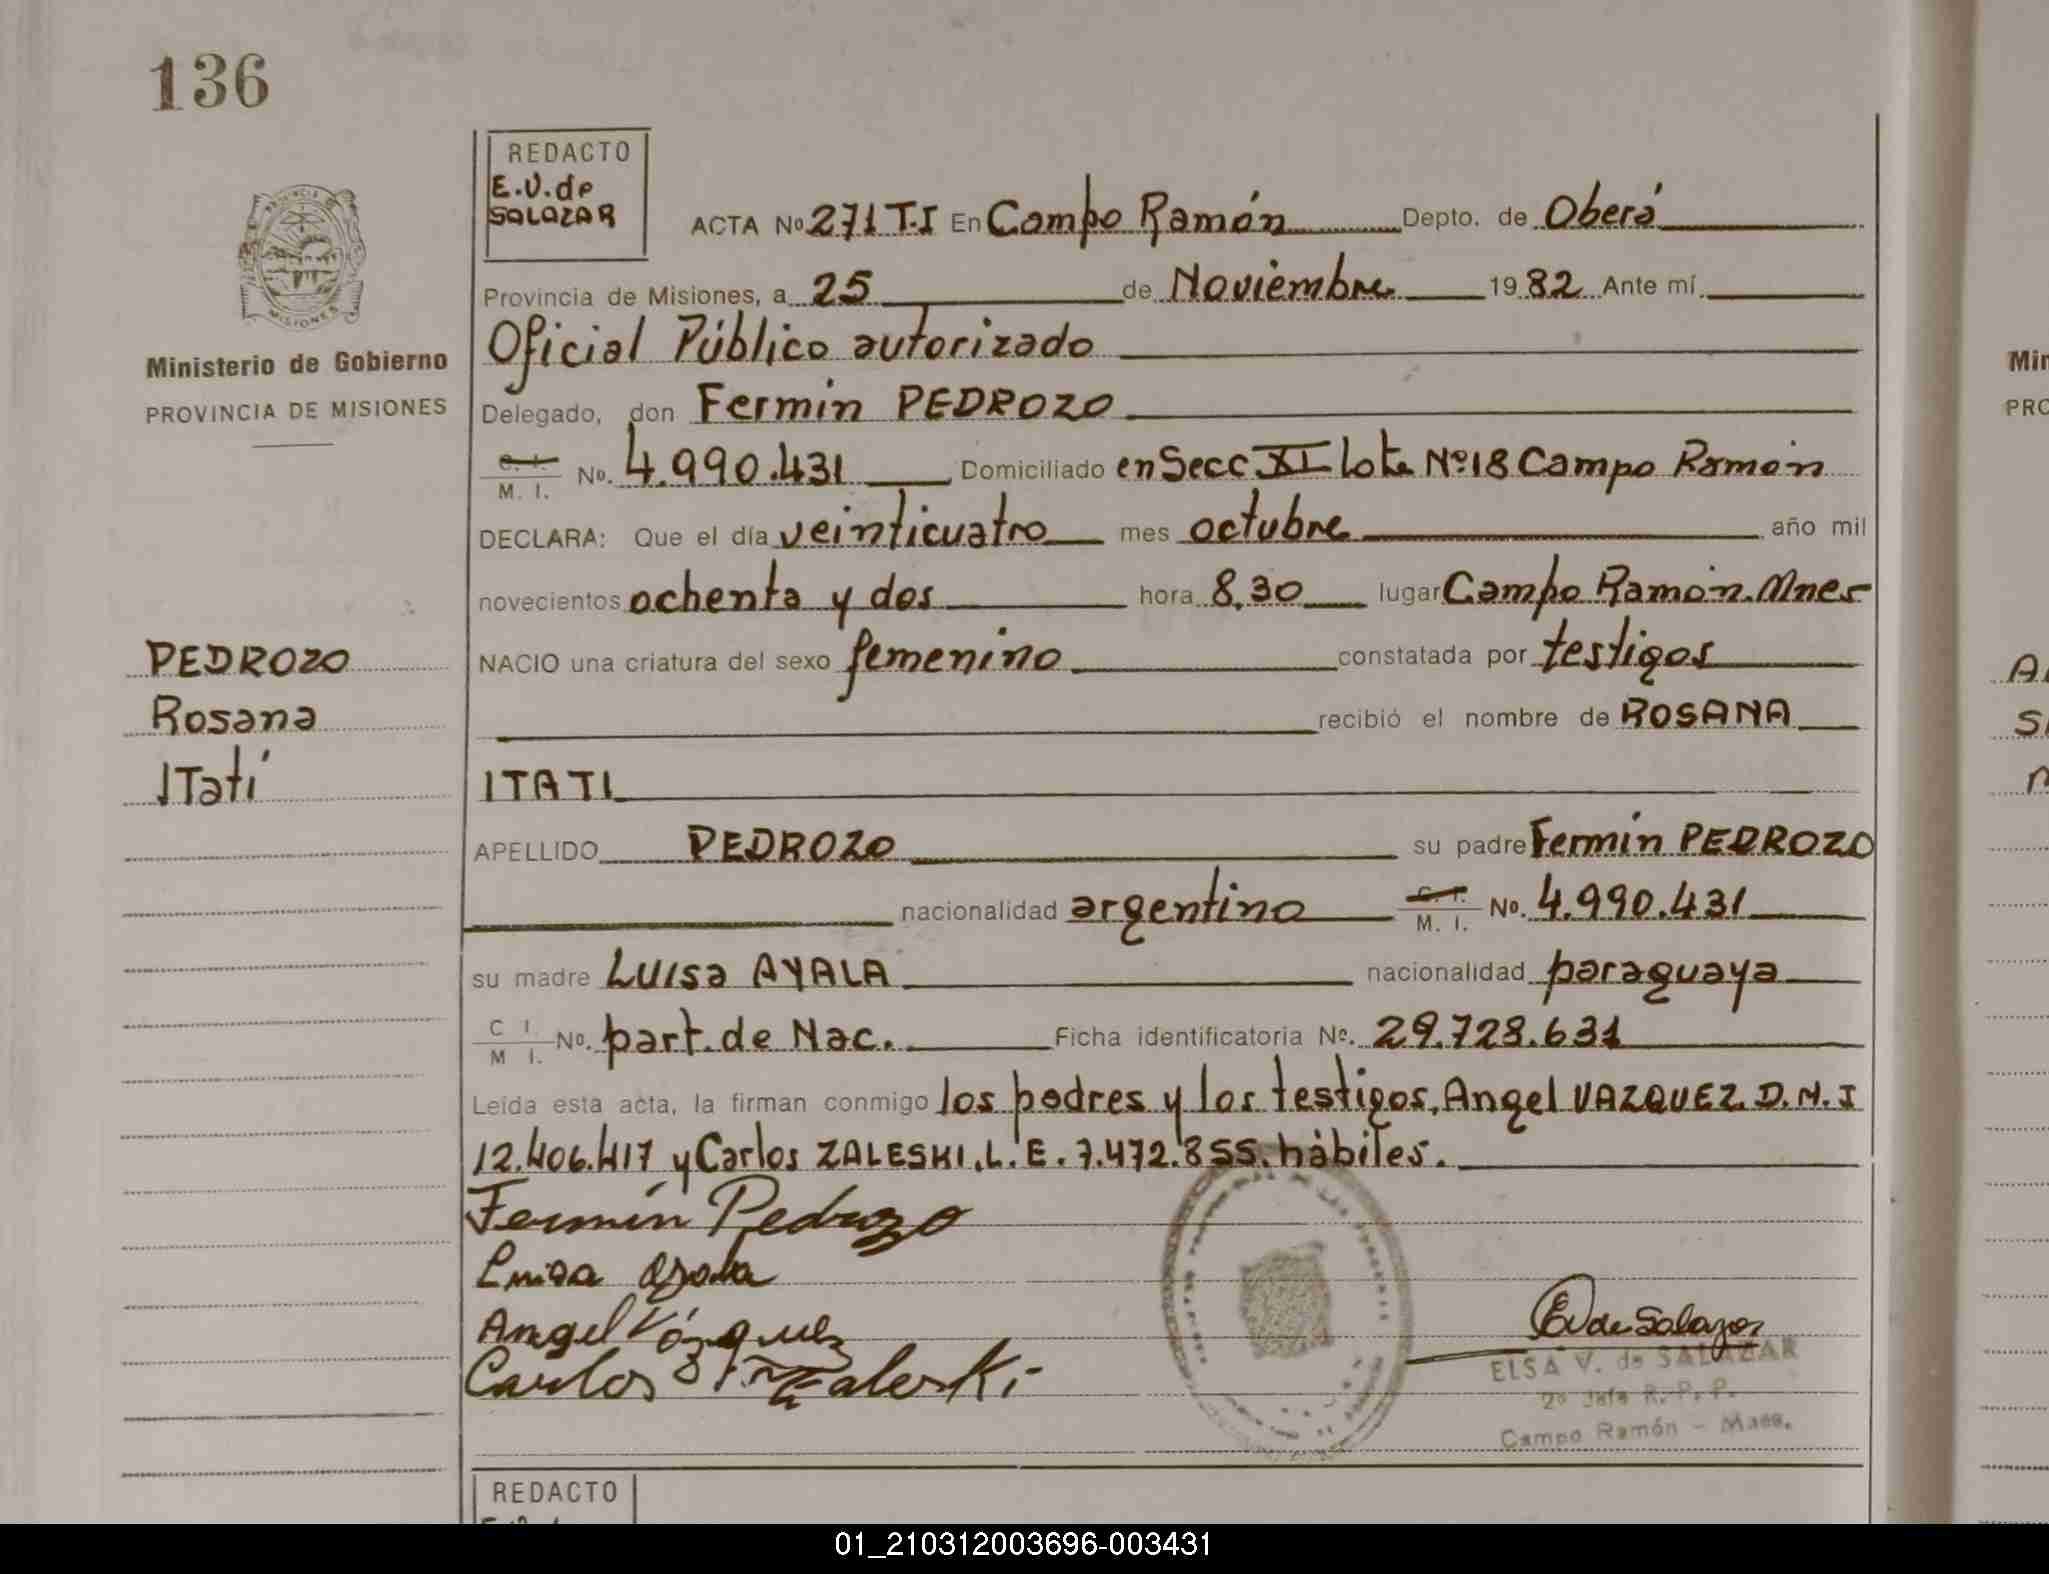 136
REDACTO
E.V. de
SALAZAR
ACTA No 271 T.I En Campo Ramón Depto. de Oberá
Provincia de Misiones, a 25 de Noviembre 1982 Ante mí
Oficial Público autorizado
MISIONES
Ministerio de Gobierno
PROVINCIA DE MISIONES
Delegado, don Fermín PEDROZO
C. I. M. I. No. 4.990.431 Domiciliado en Secc XI lote Nº18 Campo Ramón
DECLARA: Que el día veinticuatro mes octubre año mil
novecientos ochenta y dos hora 8,30 lugar Campo Ramón. Mnes
NACIO una criatura del sexo femenino constatada por testigos
recibió el nombre de ROSANA
ITATI
PEDROZO
Rosana
ITatí
APELLIDO PEDROZO su padre Fermín PEDROZO
nacionalidad argentina C. I. M. I. No. 4.990.431
su madre LUISA AYALA nacionalidad paraguaya
C I. M I. No. part. de Nac. Ficha identificatoria Nº. 29.728.631
Leída esta acta, la firman conmigo los padres y los testigos, Angel VAZQUEZ. D.N.I
12.406.417 y Carlos ZALESKI. L.E. 7.472.855. hábiles.
Fermín Pedrozo
Luisa Ayala
Angel Vázquez
Carlos Zaleski
EV de Salazar
ELSA V. de SALAZAR
2º Jefe R. P. P.
Campo Ramón - Mnes.
REDACTO
Min
PRO
01_210312003696-003431